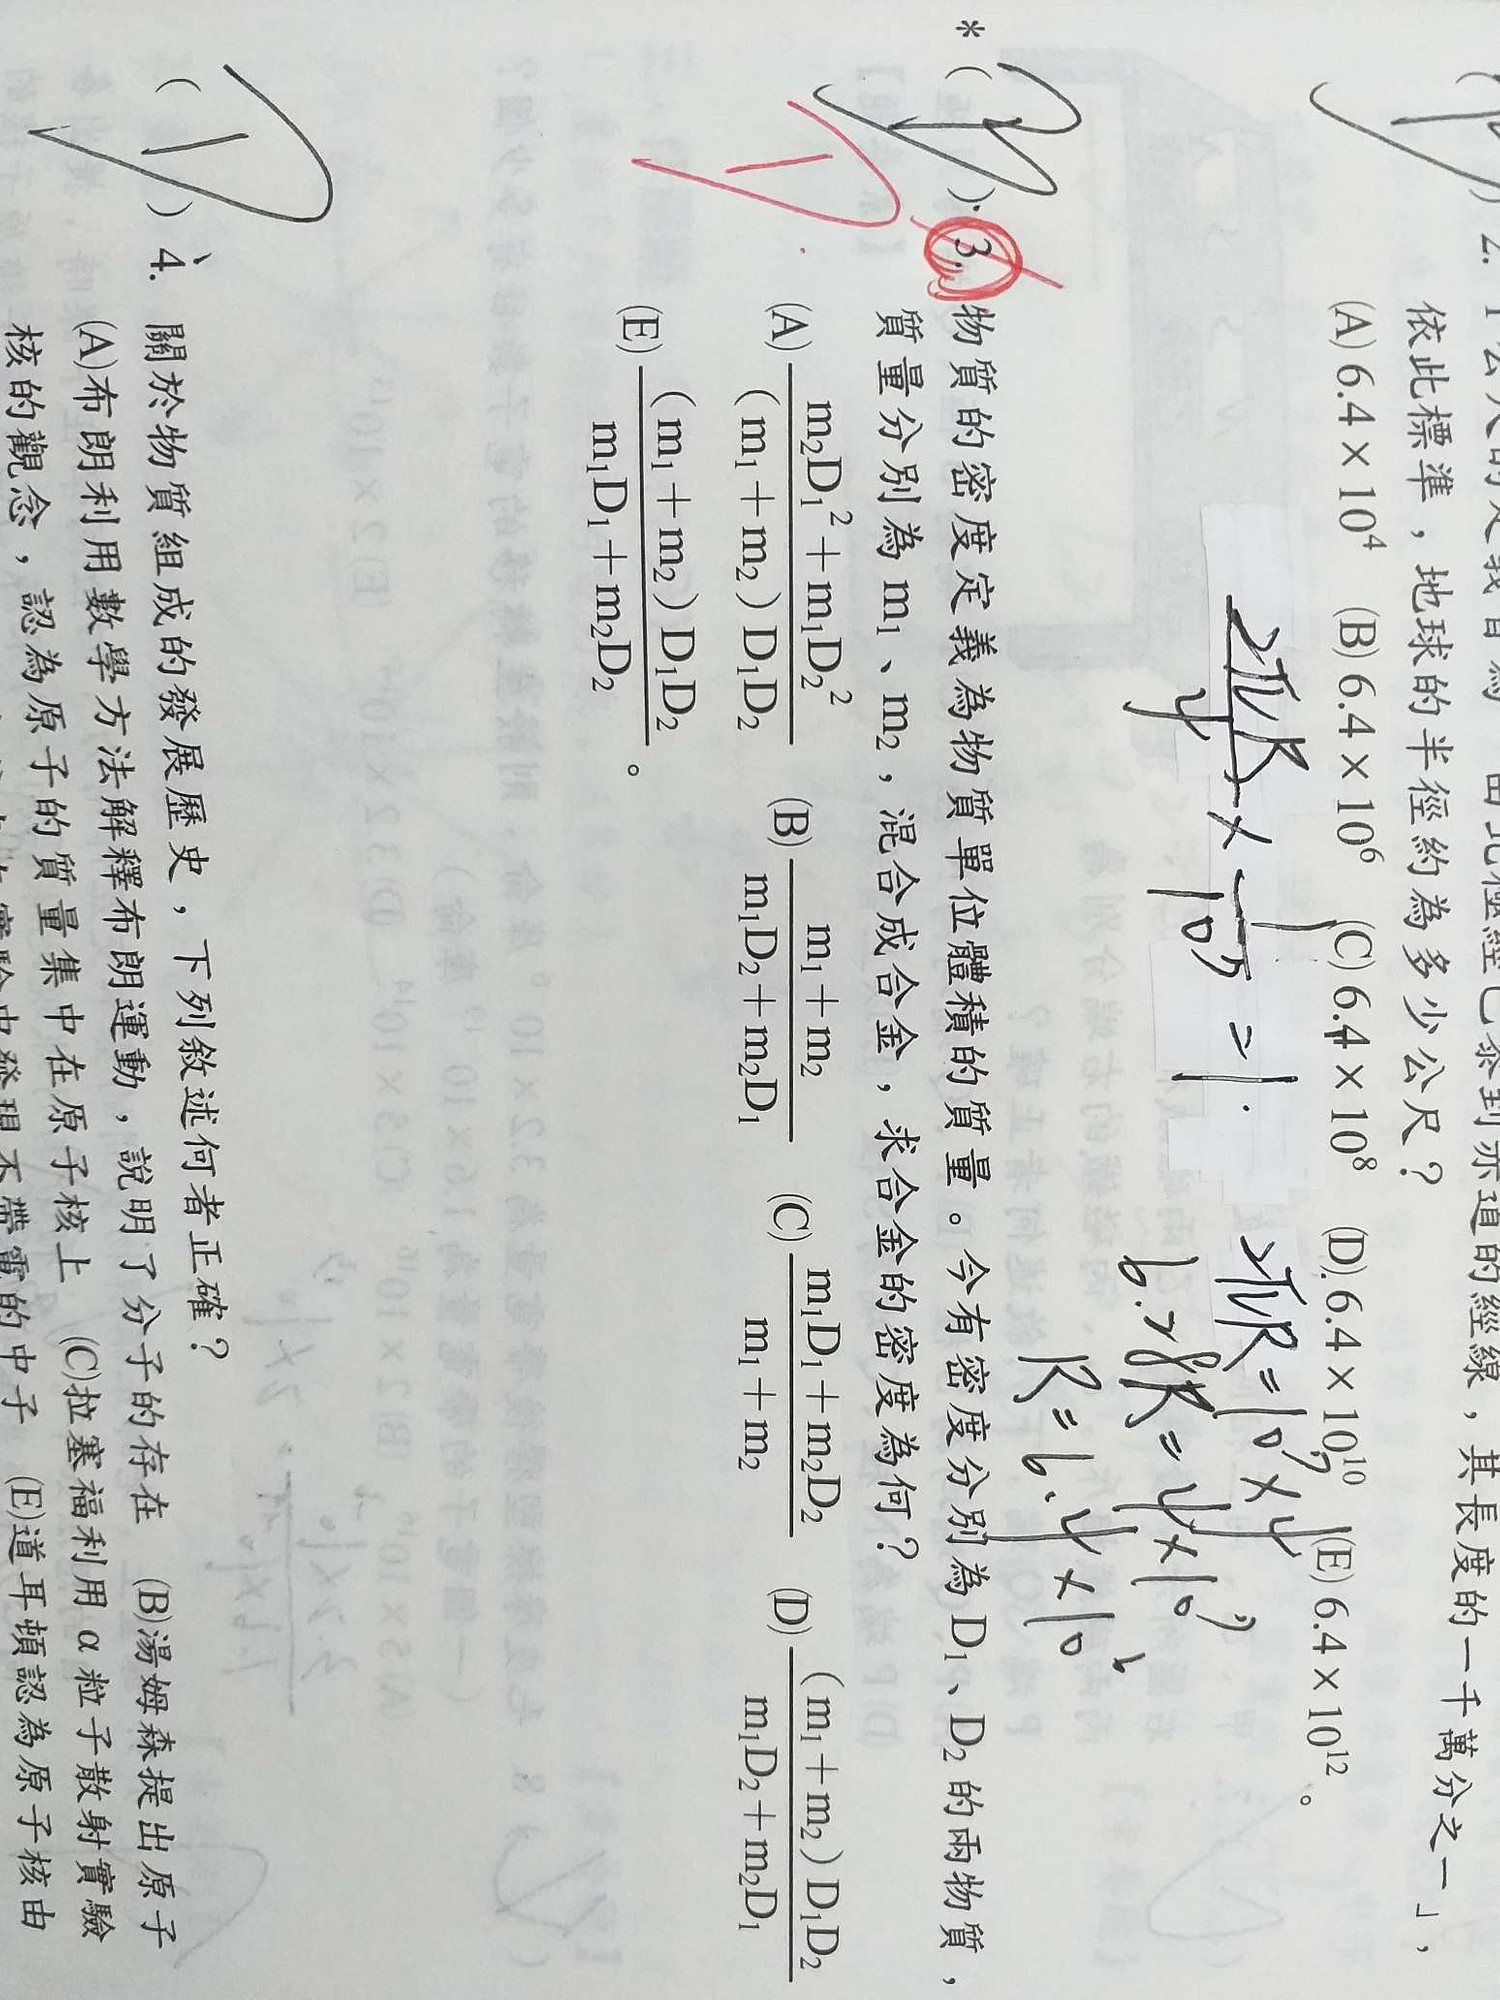 依此標準，地球的半徑約為多少公尺？
(A) 6.4 × 10⁴ (B) 6.4 × 10⁶ (C) 6.4 × 10⁸ (D) 6.4 × 10¹⁰ (E) 6.4 × 10¹² 。
2πR/4 × 1/10⁷ = 1.
2πR = 10⁷ × 4
6.28R = 4 × 10⁷
R = 6.4 × 10⁶
* ( ) 3. 物質的密度定義為物質單位體積的質量。今有密度分別為 D₁、D₂ 的兩物質，
質量分別為 m₁、m₂，混合成合金，求合金的密度為何？
(A) (m₂D₁² + m₁D₂²)/((m₁ + m₂)D₁D₂) (B) (m₁ + m₂)/(m₁D₂ + m₂D₁) (C) (m₁D₁ + m₂D₂)/(m₁ + m₂) (D) ((m₁ + m₂)D₁D₂)/(m₁D₂ + m₂D₁)
(E) ((m₁ + m₂)D₁D₂)/(m₁D₁ + m₂D₂) 。
( D ) 4. 關於物質組成的發展歷史，下列敘述何者正確？
(A)布朗利用數學方法解釋布朗運動，說明了分子的存在 (B)湯姆森提出原子
核的觀念，認為原子的質量集中在原子核上 (C)拉塞福利用 α 粒子散射實驗
實驗中發現不帶電的中子 (E)道耳頓認為原子核由